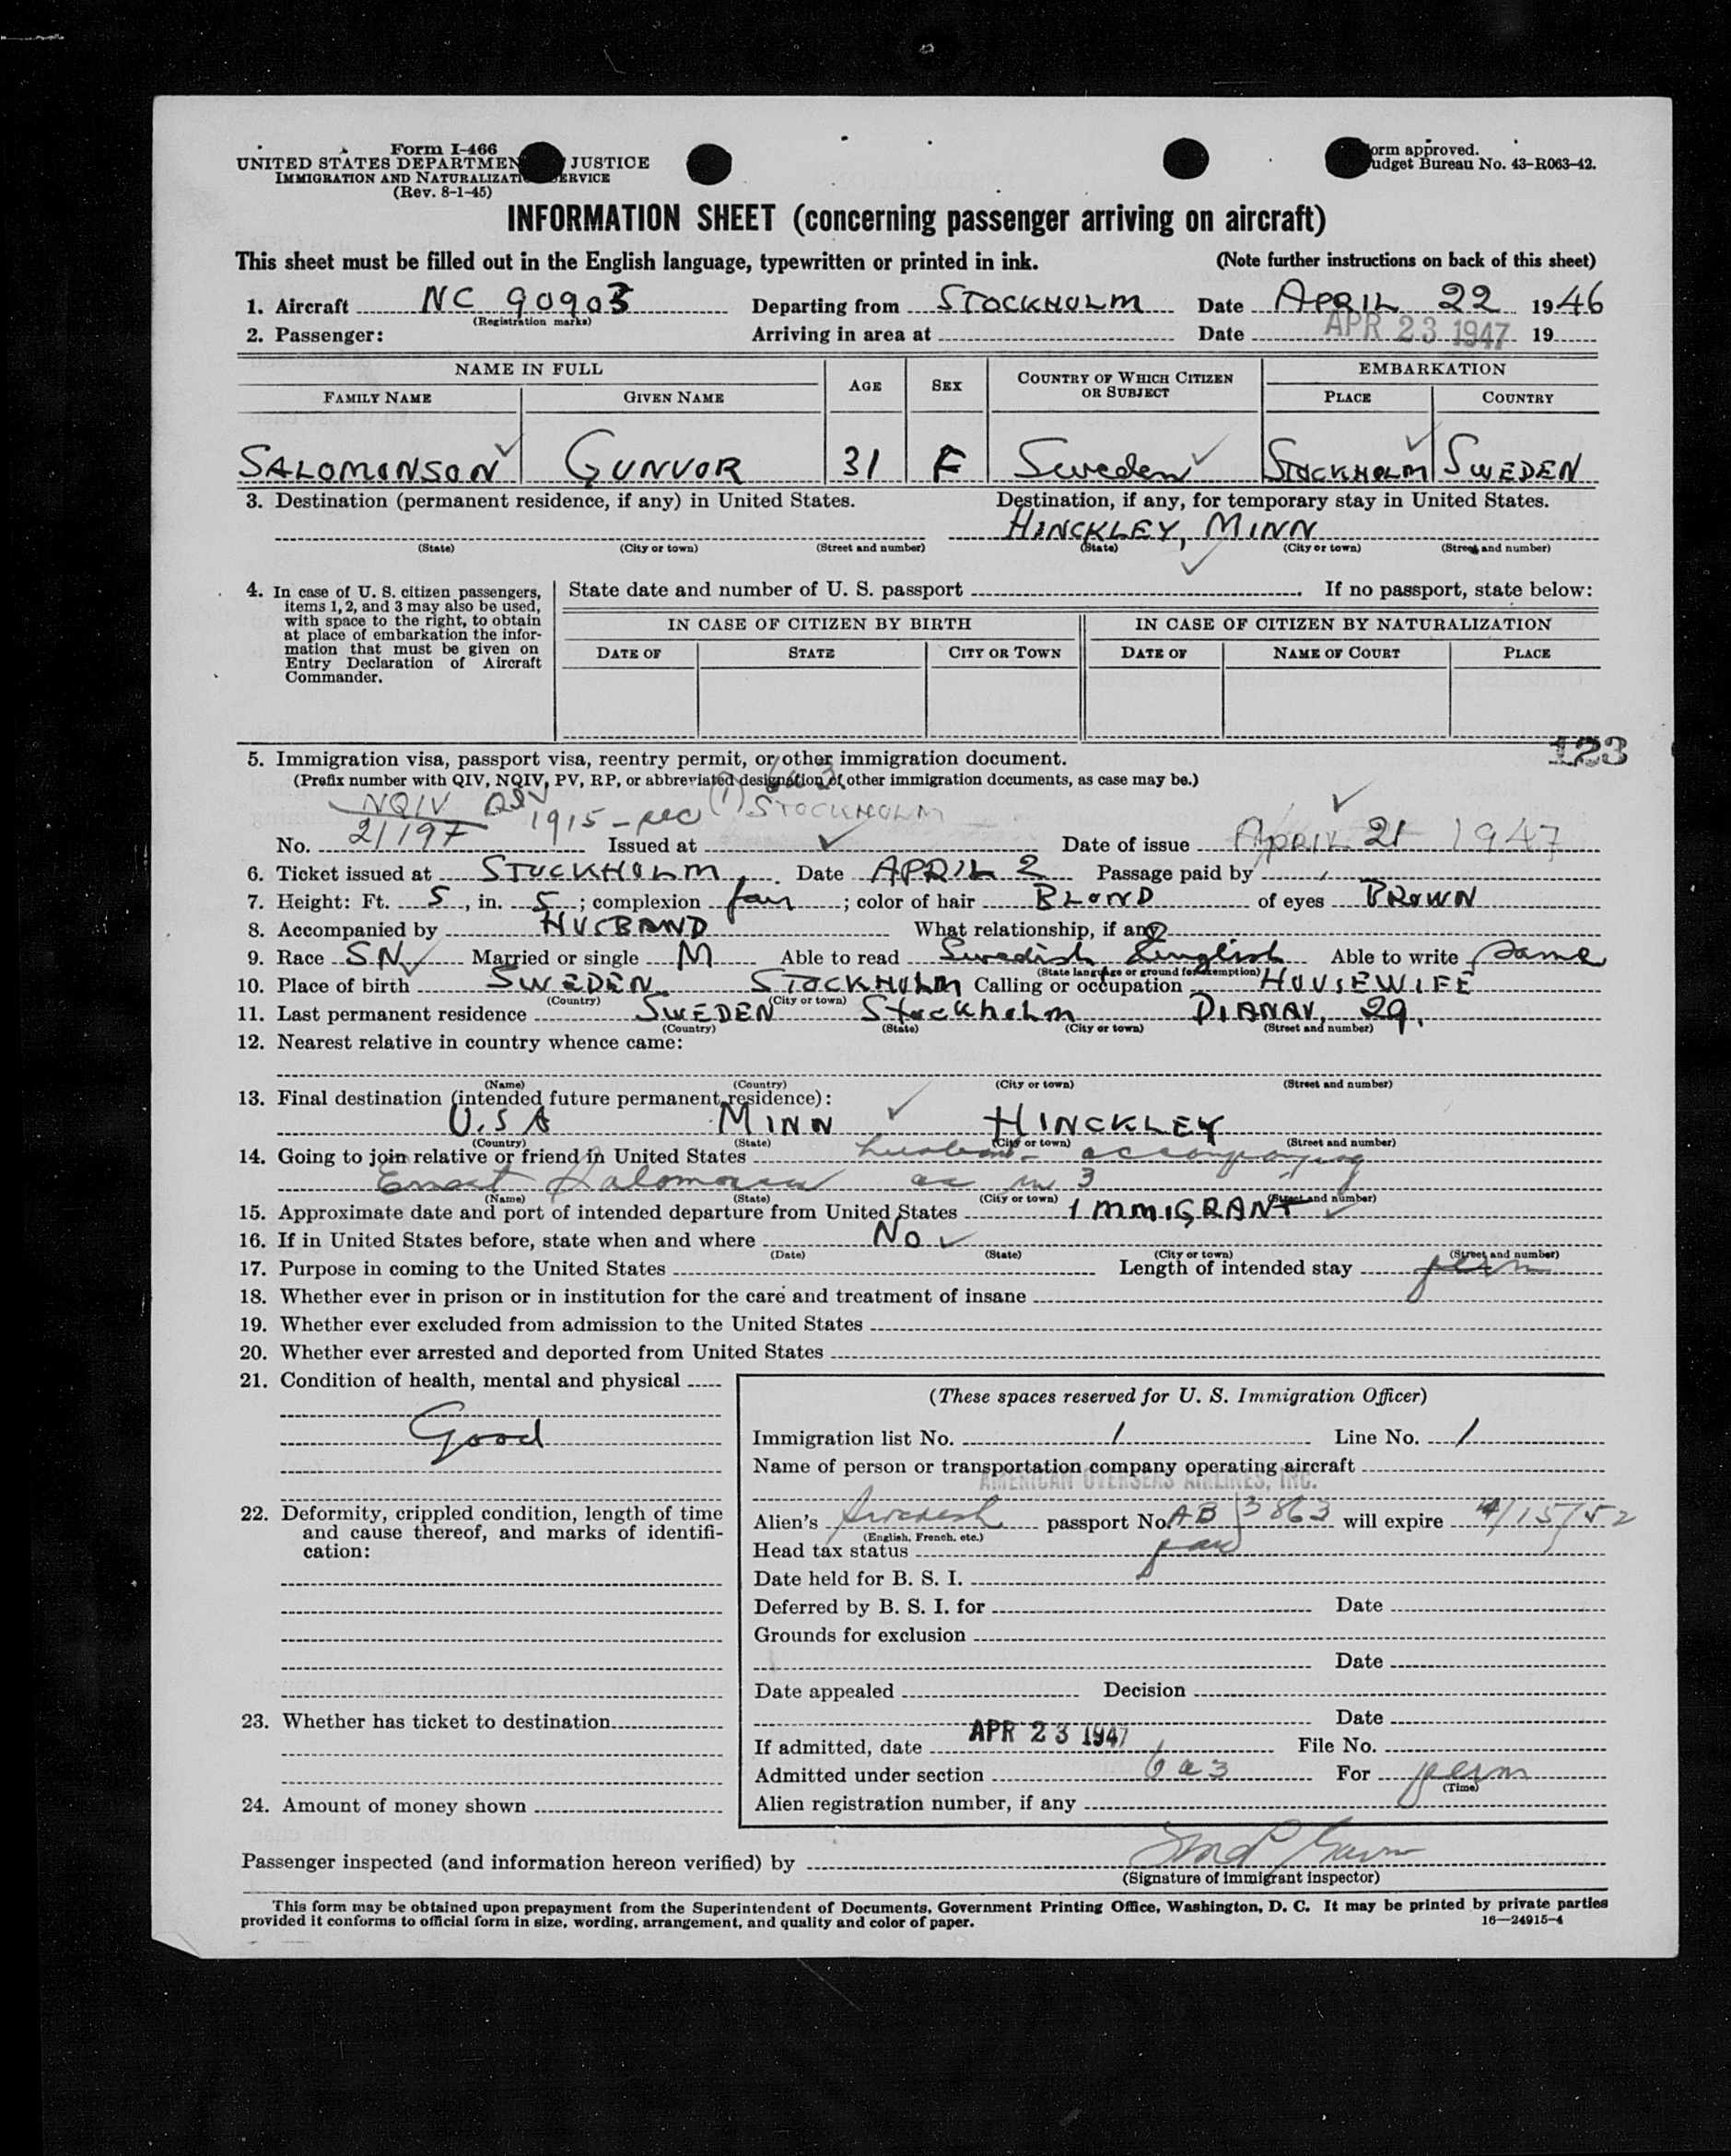 Form I-466
UNITED STATES DEPARTMEN JUSTICE
IMMIGRATION AND NATURALIZATI ERVICE
(Rev. 8-1-45)
orm approved.
udget Bureau No. 43-R063-42.
INFORMATION SHEET (concerning passenger arriving on aircraft)
This sheet must be filled out in the English language, typewritten or printed in ink. (Note further instructions on back of this sheet)
1. Aircraft NC 90903 Departing from STOCKHOLM Date APRIL 22 1946
(Registration marks)
2. Passenger: Arriving in area at Date APR 23 1947 19
NAME IN FULL AGE SEX COUNTRY OF WHICH CITIZEN OR SUBJECT EMBARKATION
FAMILY NAME GIVEN NAME PLACE COUNTRY
SALOMONSON GUNVOR 31 F Sweden STOCKHOLM SWEDEN
3. Destination (permanent residence, if any) in United States. Destination, if any, for temporary stay in United States.
HINCKLEY, MINN
(State) (City or town) (Street and number) (State) (City or town) (Street and number)
4. In case of U. S. citizen passengers, items 1, 2, and 3 may also be used, with space to the right, to obtain at place of embarkation the information that must be given on Entry Declaration of Aircraft Commander.
State date and number of U. S. passport . If no passport, state below:
IN CASE OF CITIZEN BY BIRTH IN CASE OF CITIZEN BY NATURALIZATION
DATE OF STATE CITY OR TOWN DATE OF NAME OF COURT PLACE
123
5. Immigration visa, passport visa, reentry permit, or other immigration document.
(Prefix number with QIV, NQIV, PV, RP, or abbreviated designation of other immigration documents, as case may be.)
6a3
NQIV QIV 1915-rec (1) STOCKHOLM
No. 21197 Issued at Date of issue APRIL 21 1947
6. Ticket issued at STOCKHOLM Date APRIL 2 Passage paid by
7. Height: Ft. 5, in. 5; complexion fair; color of hair BLOND of eyes BROWN
8. Accompanied by HUSBAND What relationship, if any?
9. Race SN Married or single M Able to read Swedish English Able to write same
(State language or ground for exemption)
10. Place of birth SWEDEN STOCKHOLM Calling or occupation HOUSEWIFE
(Country) (City or town)
11. Last permanent residence SWEDEN Stockholm DIANAV, 29.
(Country) (State) (City or town) (Street and number)
12. Nearest relative in country whence came:
(Name) (Country) (City or town) (Street and number)
13. Final destination (intended future permanent residence):
U.S.A MINN HINCKLEY
(Country) (State) (City or town) (Street and number)
14. Going to join relative or friend in United States husband - accompanying
Ernst Salomonson as in 3
(Name) (State) (City or town) (Street and number)
15. Approximate date and port of intended departure from United States IMMIGRANT
16. If in United States before, state when and where No
(Date) (State) (City or town) (Street and number)
17. Purpose in coming to the United States Length of intended stay perm
18. Whether ever in prison or in institution for the care and treatment of insane
19. Whether ever excluded from admission to the United States
20. Whether ever arrested and deported from United States
21. Condition of health, mental and physical
Good
22. Deformity, crippled condition, length of time and cause thereof, and marks of identification:
23. Whether has ticket to destination
24. Amount of money shown
(These spaces reserved for U. S. Immigration Officer)
Immigration list No. 1 Line No. 1
Name of person or transportation company operating aircraft
AMERICAN OVERSEAS AIRLINES, INC.
Alien's Swedish passport No. AB 3863 will expire 4/15/52
(English, French, etc.)
Head tax status
Date held for B. S. I.
Deferred by B. S. I. for Date
Grounds for exclusion
Date
Date appealed Decision
Date
If admitted, date APR 23 1947 File No.
Admitted under section 6a3 For perm
(Time)
Alien registration number, if any
Passenger inspected (and information hereon verified) by
(Signature of immigrant inspector)
This form may be obtained upon prepayment from the Superintendent of Documents, Government Printing Office, Washington, D. C. It may be printed by private parties
provided it conforms to official form in size, wording, arrangement, and quality and color of paper. 16—24915-4